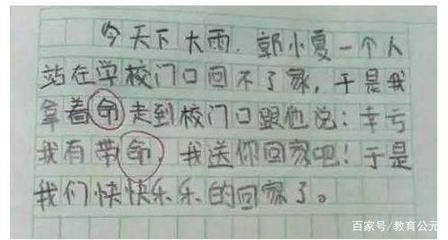 今天下大雨，郭小夏一个人
站在学校门口回不了家，于是我
拿着命走到校门口跟他说：幸亏
我有带命，我送你回家吧！于是
我们快快乐乐的回家了。
百家号/教育公元